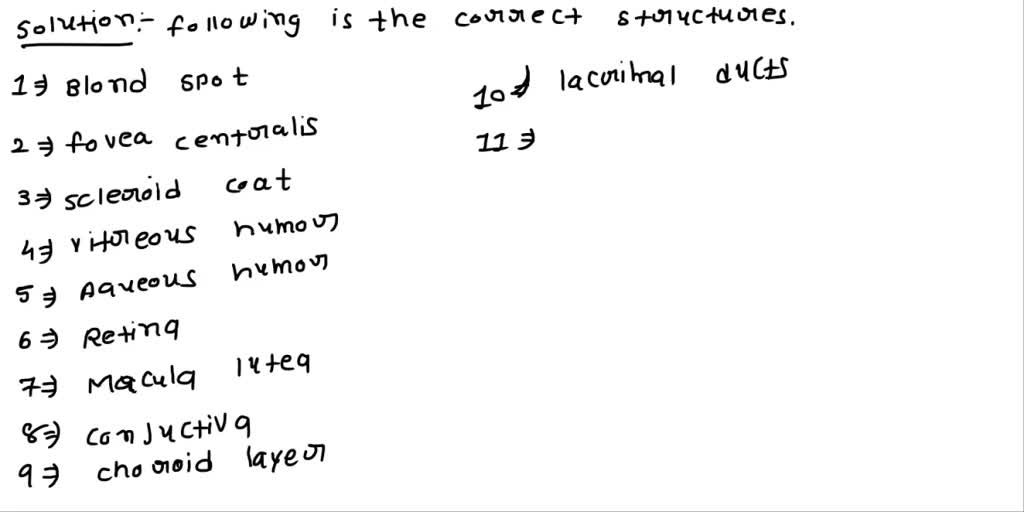 Solution:- following is the correct structures.
1⇒ Blond spot
2⇒ fovea centoralis
3⇒ scleroid coat
4⇒ vitoreous humour
5⇒ Aqueous humour
6⇒ Retina
7⇒ Macula lutea
8⇒ conjuctiva
9⇒ choroid layer
10⇒ lacorimal ducts
11⇒